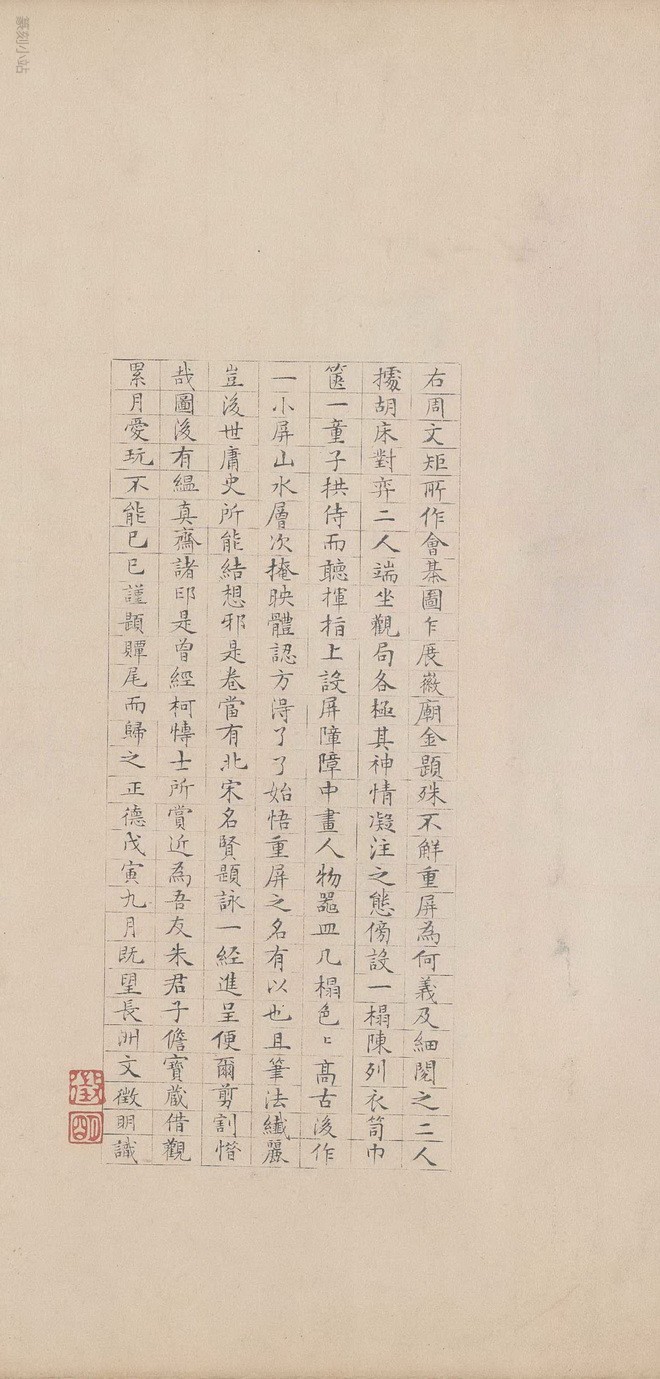 右周文矩所作會棊圖乍展徽廟金題殊不解重屏為何義及細閱之二人
據胡床對弈二人端坐觀局各極其神情凝注之態傍設一榻陳列衣笥巾
篋一童子拱侍而聽揮指上設屏障障中畫人物器皿几榻色〻高古後作
一小屏山水層次掩映體認方得了了始悟重屏之名有以也且筆法纖麗
豈後世庸史所能結想邪是卷當有北宋名賢題詠一經進呈便爾剪割惜
哉圖後有緼真齋諸印是曾經柯博士所賞近為吾友朱君子儋寶藏借觀
累月愛玩不能已已謹題贉尾而歸之正德戊寅九月既望長洲文徵明識
徵
明
篆刻小站